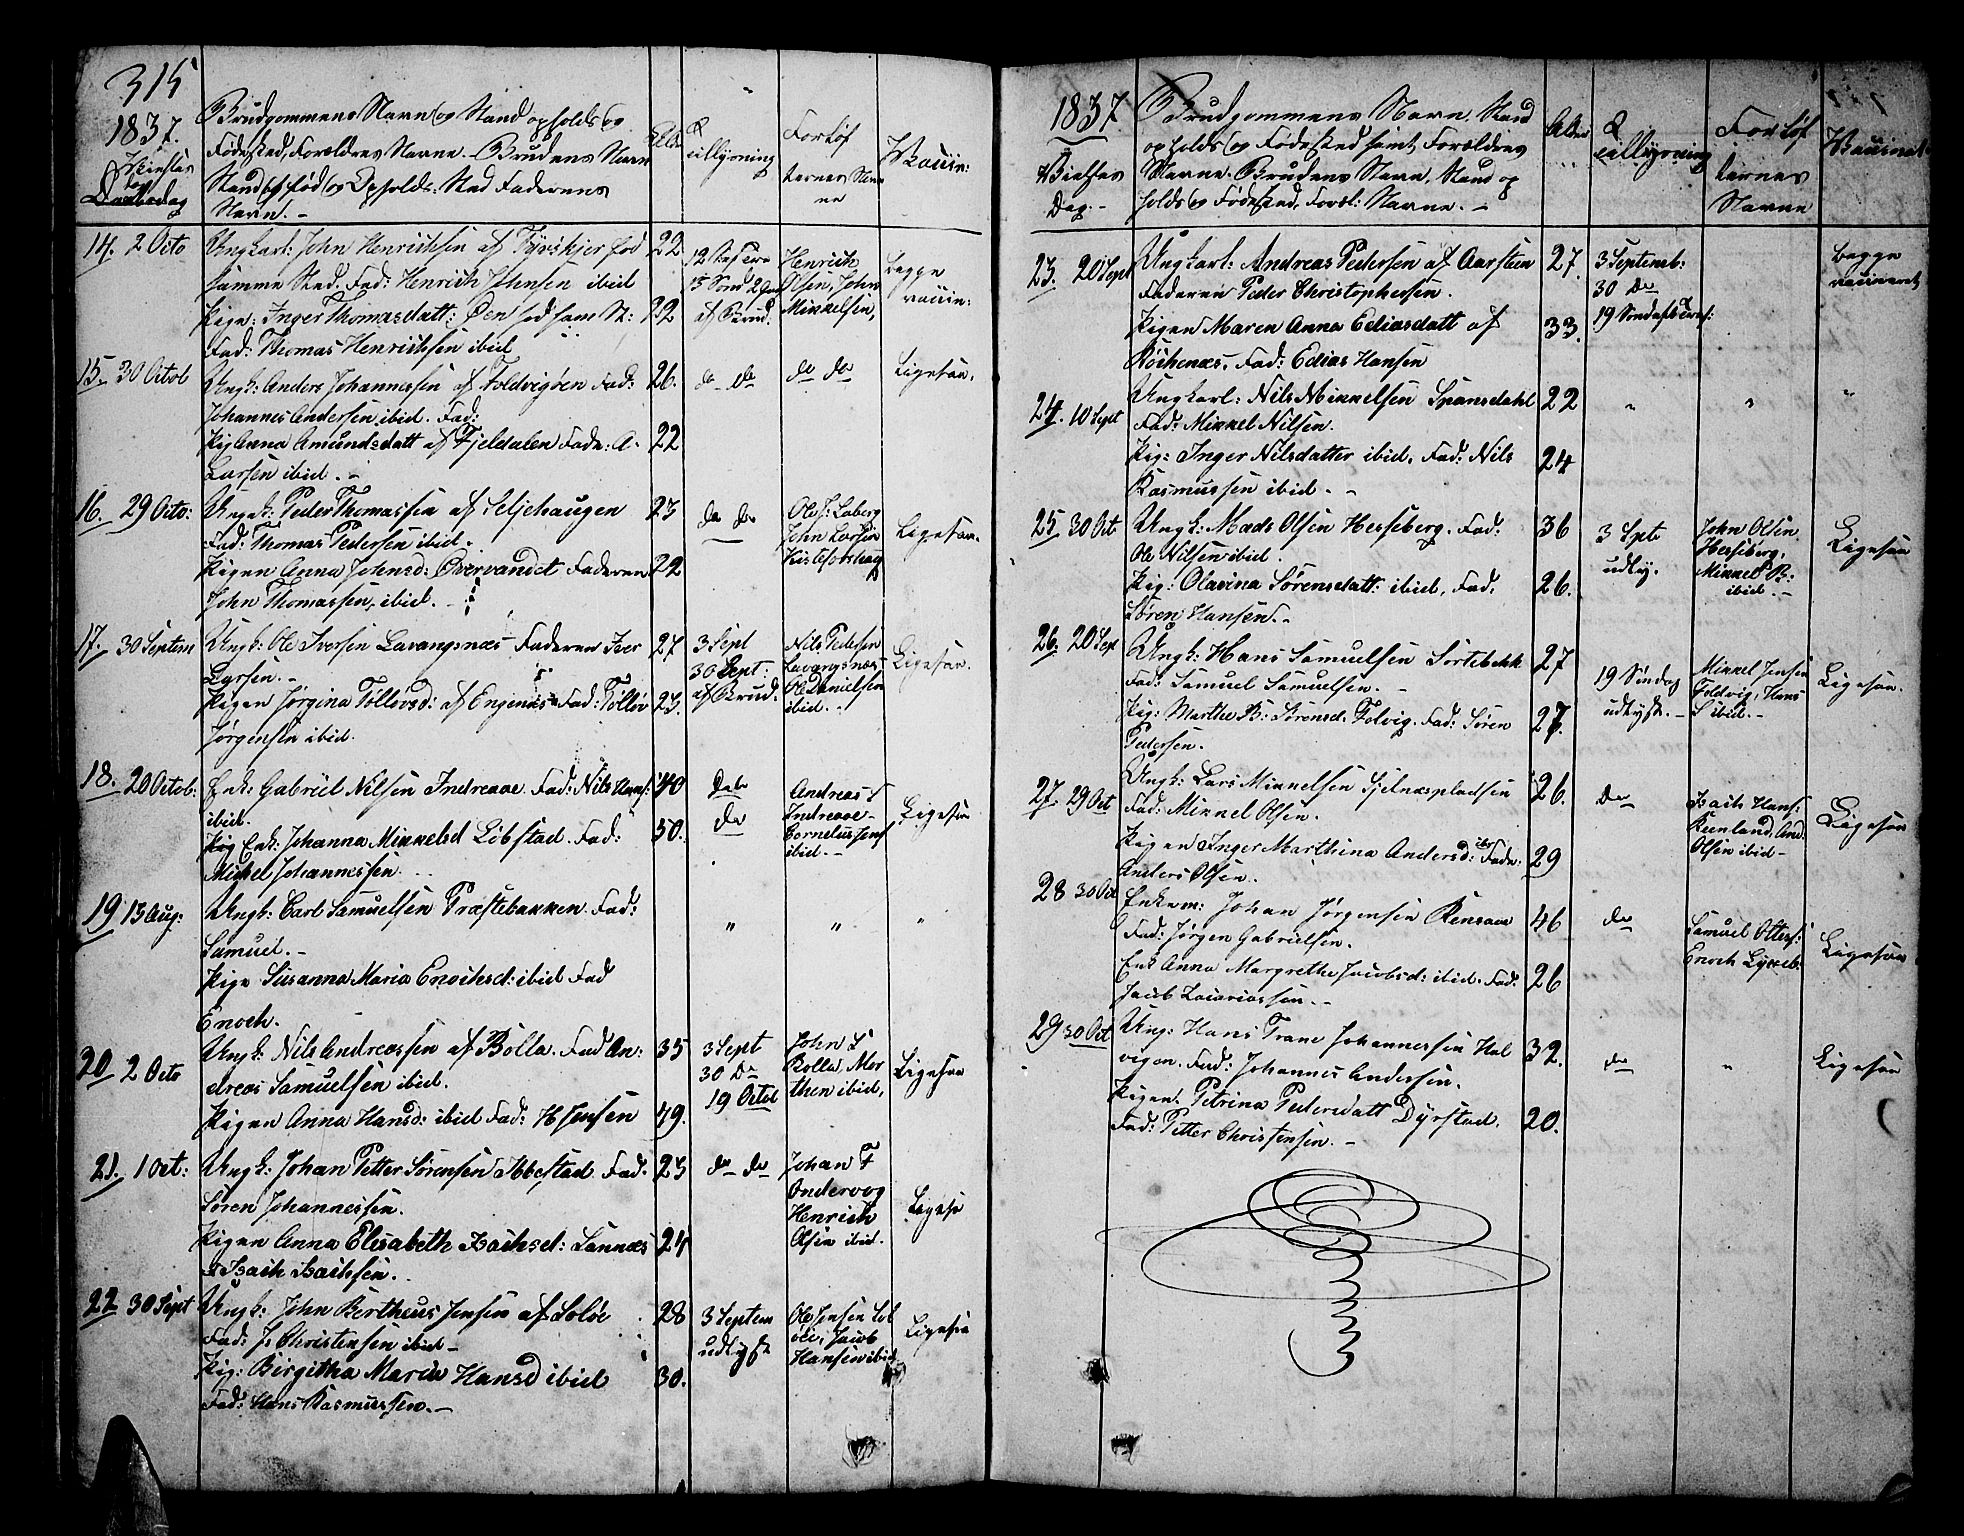 315
1837.
Vielses
Dag
Brudgommens Navn og Stand opholds og
Fødested, Forældres Navne. Brudens Navn
Stand og født og Opholds: Sted Faderens
Navn. -
Alder
tillysning
Forlof
Navn
Vaccin:
14. 2 Octo
Ungkarl: John Henrichsen af fød
samme Sted. Fad: Henrich Johnsen ibid
22
Pigen: Inger Thomasdatt: Øen fød sam St:
Fad: Thomas Henrichsen ibid
22
af Brud:
Henrich
Olsen, John
Mikkelsen,
begge
vaccin:
15. 30 Octob
Ungk: Anders Johannessen af Foldvigøren Fad:
Johannes Andersen ibid. Fad:
26.
Pig Anna Amundsdatt af Fjeldalen Fade: A-
Larsen ibid. -
22
do do
do do
Ligesaa.
16. 29 Octo:
Ungk: Peder Thomassen af Seljehaugen
Fad: Thomas Pedersen ibid.
23
Pigen Anna Johnsd: Øvervandet Faderen
John Thomassen, ibid. -
22
do do
Ole J: Laberg
John Larsen
Ligesaa.
17. 30 Septem
Ungk: Ole Iversen Lavangsnæs Faderen Iver
Larsen. -
27
Pigen Jørgina Tollevsd: af Engenæs Fad: Tollev
Jørgensen ibid.
23.
3 Sept
30 Sept:
af Brud:
Nils Pedersen
Lavangsnæs
Ole Danielsen
ibid. -
Ligesaa.
18. 20 Octob:
Enk: Gabriel Nilsen Indreaae. Fad: Nils Hans:
ibid.
40
Pig Enk: Johanna Mikkelsd Libstad. Fad:
Mickel Johannessen. -
50.
do
do
Andreas
Indreaae
Cornelius Jens
ibid. -
Ligesaa
19 13 Aug:
Ungk: Carl Samuelsen Præstebakken. Fad:
Samuel. -
Pige Susanna Maria Enochsd: ibid Fad
Enoch.
"
"
"
20 2 Octo
Ungk: Nils Andreassen af Bolla. Fad An:
dreas Samuelsen ibid.
35
Pigen Anna Hansd: ibid Fad: H Jensen
49.
3 Sept
30 do
19 Octob
John S
Bolla, Mor
then ibid,
Ligesaa
21. 1 Oct:
Ungk: Johan Petter Sørensen Ibbestad. Fad:
Søren Johannessen.
23
Pigen Anna Elisabeth Isachsd: Sannæs
F Isach Isachsen. -
24
do do
Johan F
Henrich
Olsen ibid.
Ligesa
22 30 Sept
Ungk: John Bertheus Jensen af Soløe
Fad: J: Christensen ibid -
28
Pig: Birgitha Maria Hansd ibid
Fad: Hans Rasmussen. -
30.
3 Septem
udlyst
Ole Jensen Sol
øe, Jacob
Hansen ibid
Ligesaa
1837
Vielses
Dag. -
Brudgommens Navn, Stand
opholds og Fødested samt Forældres
Navne. Brudens Navn, Stand op
holds og Fødested, Foræl: Navne. -
Alder
tillysning
Forlof
vernes
Navne
Vaccinat
23. 20 Sept
Ungkarl: Andreas Pedersen af Aarsteen
Faderen Peder Christophersen.
27.
Pigen Maren Anna Ediasdatt af
Rochenæs. Fad: Edias Hansen
33.
3 Septemb:
30 do
begge
vaccineret
24. 10 Sept
Ungkarl: Nils Mikkelsen Spansdahl
Fad: Mikkel Nilsen.
22
Pig: Inger Nilsdatter ibid. Fad: Nils
Rasmussen ibid. -
24
"
"
"
25 30 Oct
Ungk: Mads Olsen Hesseberg. Fad:
Ole Nilsen ibid.
36
Pig: Olavina Sørensdatt: ibid. Fad.
Søren Hansen. -
26.
3 Spt
udly.
John Olsen
Hesseberg.
Mikkel P:
ibid. -
Ligesaa
26. 20 Sept
Ungk: Hans Samuelsen Sortebekk
Fad: Samuel Samuelsen. -
27
Pig: Marthe B: Sørensd. Folvig. Fad: Søren
Pedersen.
27.
19 Søndag
udlyst. -
Mikkel Jensen
Foldvig, Hans
S ibid. -
Ligesaa.
27. 29 Oct
Ungk: Lars Mikkelsen Spilnæspladsen
Fad: Mikkel Olsen.
26.
Pigen Inger Marthina Andersd: ibid Fade:
Anders Olsen.
29
do
Isach Hans:
And.
Olsen ibid -
Ligesaa
28 30 Oct
Enkem: Johan Jørgensen Rensaae
Fad: Jørgen Gabrielsen.
46
Enk Anna Margrethe Jacobsd: ibid. Fad:
Jacob Zacariassen. -
26
do
Samuel Otters:
Enoch
Ligesaa
29 30 Oct
Ung: Hans Trane Johannessen Hal
vigen. Fad: Johannes Andersen.
32.
Pigen. Petrina Pedersdatt Dyrstad.
Fad: Petter Christensen. -
20.
do
"
Ligesaa